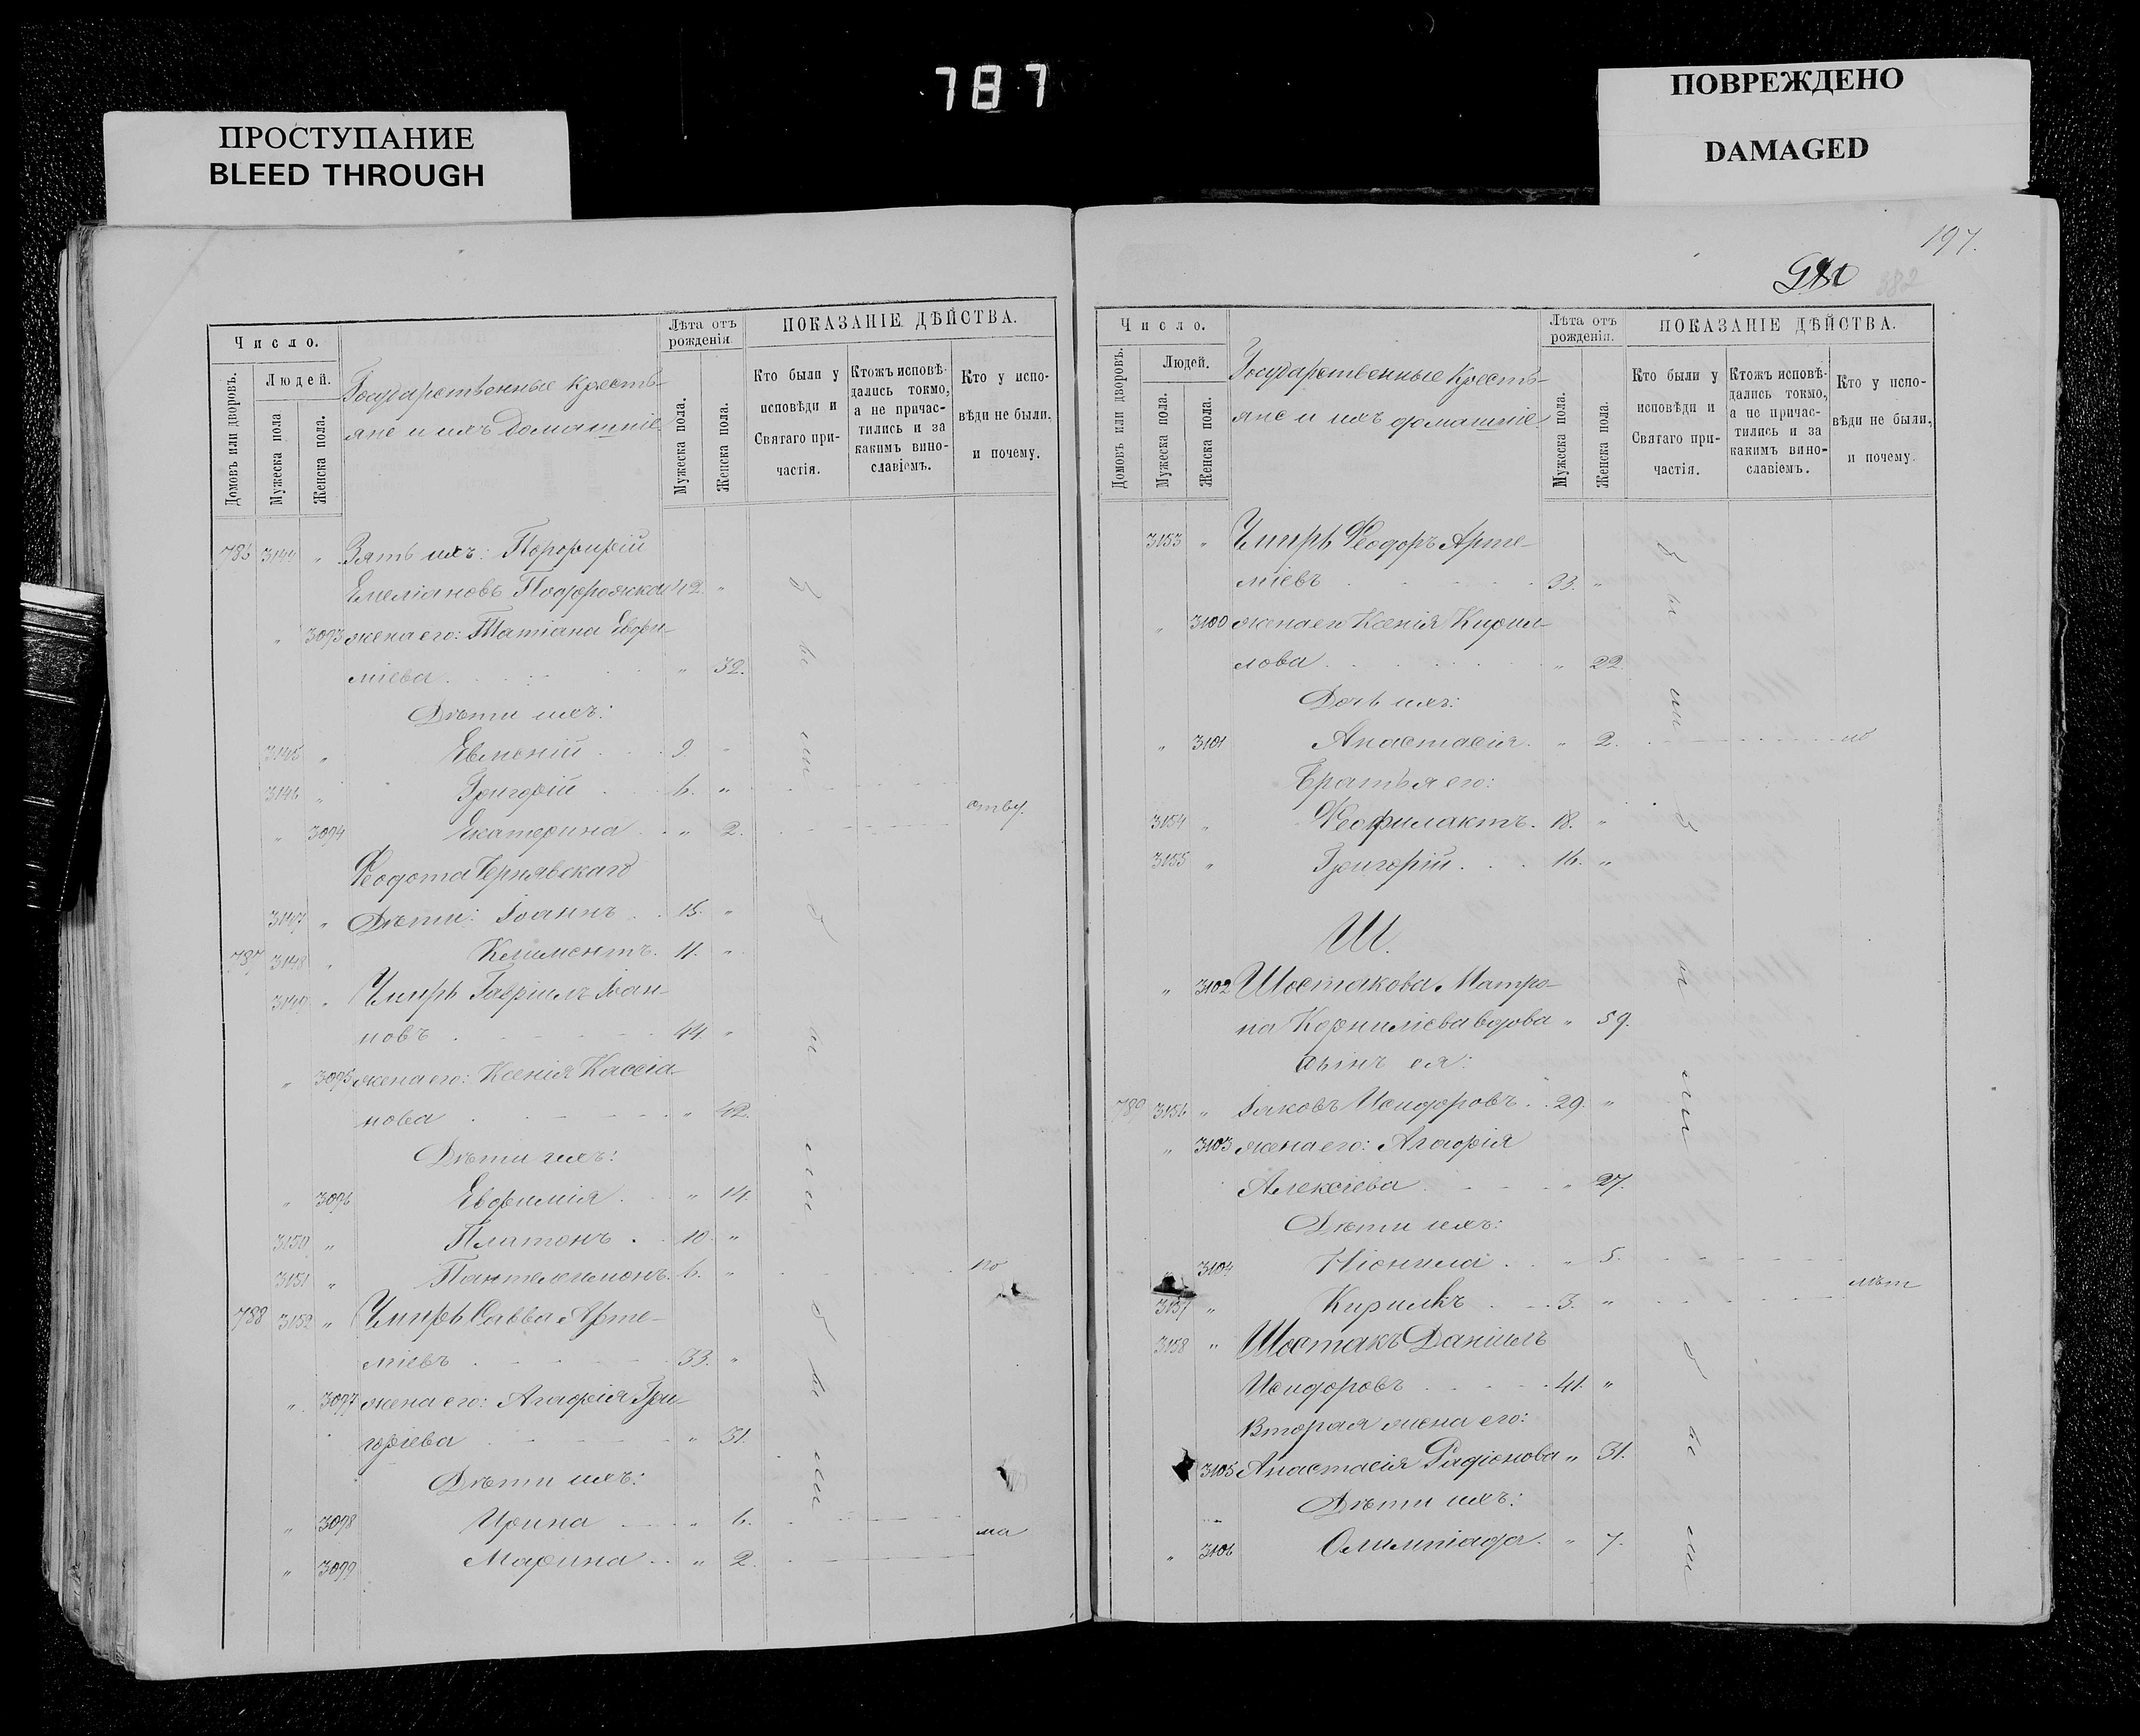 787
ПРОСТУПАНИЕ
BLEED THROUGH
ПОВРЕЖДЕНО
DAMAGED
Число.
Домовъ или дворовъ.
Людей.
Мужеска пола
Женска пола.
Государственные Кресть-
яне и ихъ домашніе
Лѣта отъ рожденія
Мужеска пола.
Женска пола.
ПОКАЗАНІЕ ДѢЙСТВА.
Кто были у исповѣди и Святаго при-частія.
Ктожъ исповѣ-дались токмо, а не причас-тились и за какимъ вино-славіемъ.
Кто у испо-вѣди не были, и почему.
786 3144 " Зять ихъ: Порфирій
Емеліановъ Подорожка 42. "
" 3093 жена его: Татіана Евфи-
міева " 32.
Дѣти ихъ:
3145 " Евменій 9 "
3146 " Григорій 6. "
" 3094 Екатерина " 2.
Феодота Чернявскаго
3147 " Дѣти: Іоаннъ 15. "
787 3148 " Климентъ. 11. "
3149 " Чмирь Гавріилъ Іоан-
новъ 44. "
" 3095 жена его: Ксенія Кассіа-
нова " 42.
Дѣти ихъ:
" 3096 Евфимія " 14.
3150 " Платонъ 10. "
3151 " Пантелеимонъ. 6. "
788 3152 " Чмирь Савва Арте-
міевъ 33. "
" 3097 жена его: Агафія Гри-
горіева " 31.
Дѣти ихъ:
" 3098 Ирина " 6.
" 3099 Марина " 2.
были
были
были
по
197.
382
Число.
Домовъ или дворовъ.
Людей.
Мужеска пола.
Женска пола.
Государственные Кресть-
яне и ихъ домашніе
Лѣта отъ рожденія.
Мужеска пола.
Женска пола.
ПОКАЗАНІЕ ДѢЙСТВА.
Кто были у исповѣди и Святаго при-частія.
Ктожъ исповѣ-дались токмо, а не причас-тились и за какимъ вино-славіемъ.
Кто у испо-вѣди не были, и почему.
3153 " Чмирь Феодоръ Арте-
міевъ 33. "
" 3100 жена его Ксенія Кирил-
лова " 22.
Дочь ихъ:
" 3101 Анастасія. " 2.
Братья его:
3154 " Феофилактъ. 18. "
3155 " Григорій 16. "
Ш.
" 3102 Шостакова Матро-
на Корниліева вдова " 59.
сынъ ея:
789 3156 " Іаковъ Исидоровъ 29. "
" 3103 жена его: Агафія
Алексіева " 27.
Дѣти ихъ:
3104 Неонила " 5.
3157 " Кириллъ 3. "
3158 " Шостакъ Даніилъ
Исидоровъ 41. "
Вторая жена его:
3105 Анастасія Радіонова " 31.
Дѣти ихъ:
" 3106 Олимпіада. " 7.
были
были
были
лѣт